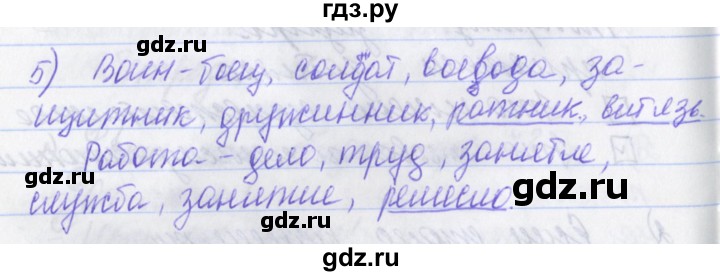 гдз.ру
5) Воин - боец, солдат, воевода, за-
щитник, дружинник, ратник, витязь.
Работа - дело, труд, занятие,
служба, занятие, ремесло.
gdz.ru
gdz.ru
gdz.ru
gdz.ru
gdz.ru
gdz.ru
gdz.ru